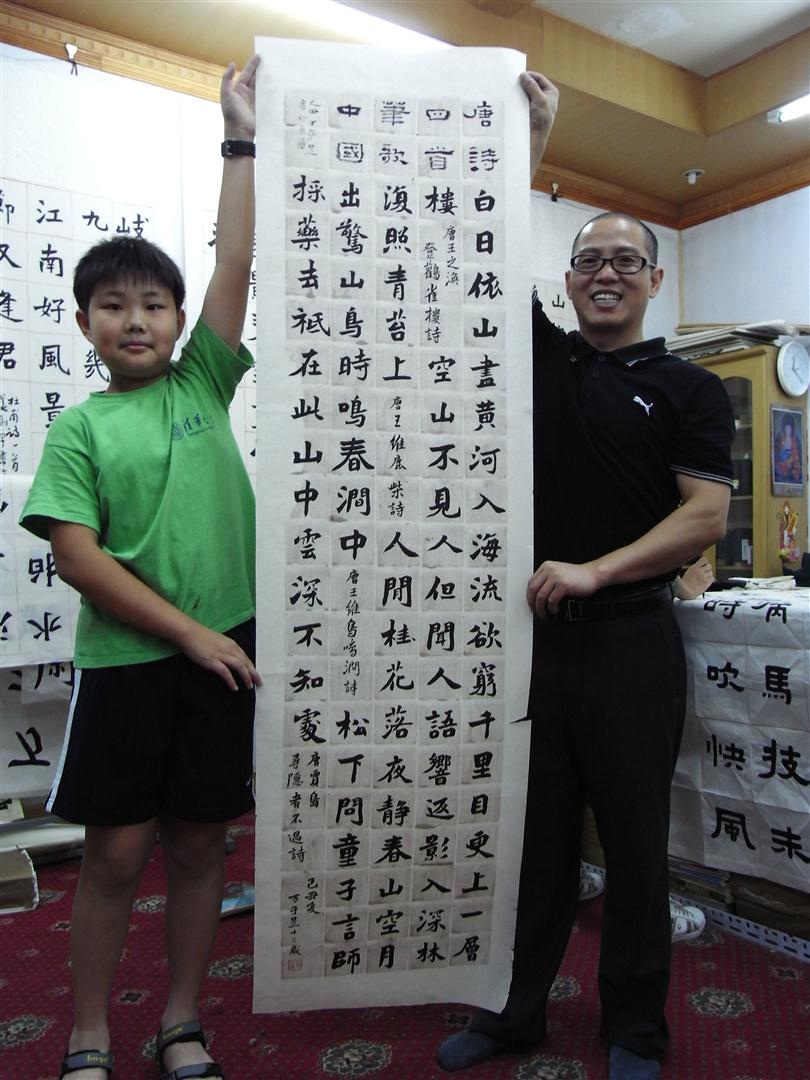 唐詩白日依山盡黃河入海流欲窮千里目更上一層
四首樓
唐王之渙
登鸛雀樓詩
空山不見人但聞人語響返影入深林
筆歌復照青苔上
唐王維鹿柴詩
人閒桂花落夜靜春山空月
中國出驚山鳥時鳴春澗中
唐王維鳥鳴澗詩
松下問童子言師
採藥去祇在此山中雲深不知處
唐賈島
尋隱者不遇詩
己丑夏
岐
九
幾
江南好風景
逢君
杜甫詩一首
馬技未
時吹快風